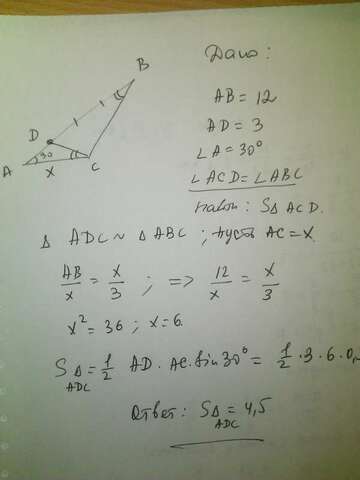 Дано:
B
AB = 12
D
AD = 3
30
∠A = 30°
A
x
C
∠ACD = ∠ABC
Найти: S△ACD.
△ ADC ~ △ ABC ; пусть AC = x.
AB/x = x/3 ; => 12/x = x/3
x² = 36 ; x = 6.
S△ADC = 1/2 AD · AC · Sin 30° = 1/2 · 3 · 6 · 0,
Ответ: S△ADC = 4,5